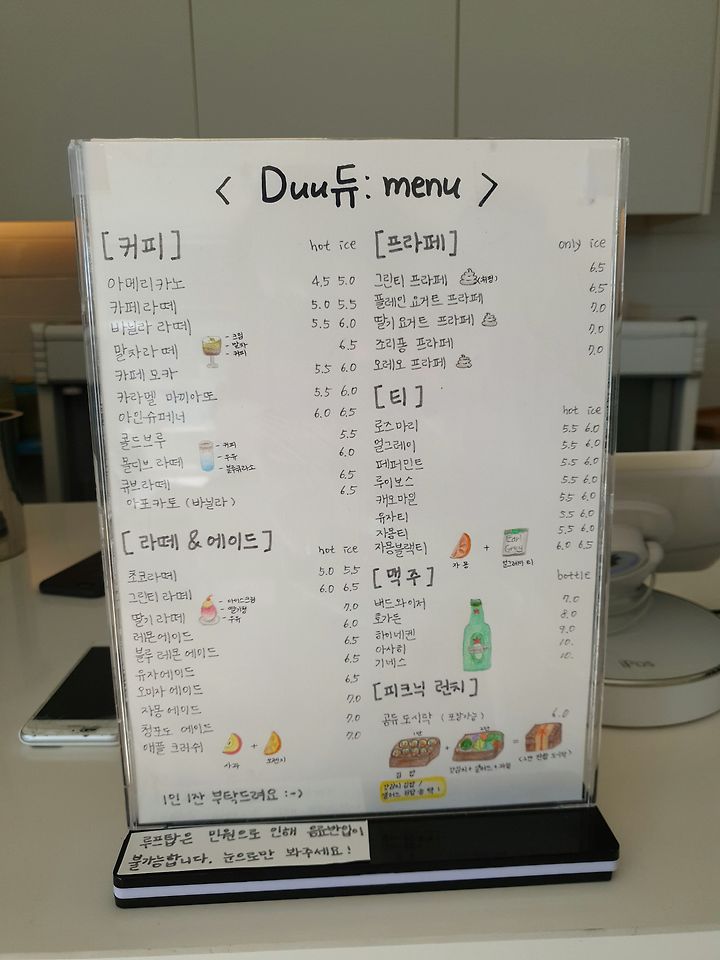 < Duu듀: menu >
[커피] hot ice
아메리카노 4.5 5.0
카페라떼 5.0 5.5
바닐라 라떼 5.5 6.0
말차라떼 6.5
- 크림
- 말차
- 커피
카페모카 5.5 6.0
카라멜 마끼아또 5.5 6.0
아인슈페너 6.0 6.5
콜드브루 5.5
몰디브 라떼 6.0
- 커피
- 우유
- 블루큐라소
큐브라떼 6.5
아포카토 (바닐라) 6.5
[라떼 & 에이드] hot ice
초코라떼 5.0 5.5
그린티 라떼 6.0 6.5
딸기 라떼 7.0
- 아이스크림
- 딸기청
- 우유
레몬에이드 6.0
블루 레몬에이드 6.5
유자에이드 6.5
오미자 에이드 6.5
자몽 에이드 7.0
청포도 에이드 7.0
애플 크러쉬 7.0
사과 + 오렌지
1인 1잔 부탁드려요 :-)
[프라페] only ice
그린티 프라페 6.5
플레인 요거트 프라페 6.5
딸기 요거트 프라페 7.0
죠리퐁 프라페 7.0
오레오 프라페 7.0
[티] hot ice
로즈마리 5.5 6.0
얼그레이 5.5 6.0
페퍼민트 5.5 6.0
루이보스 5.5 6.0
캐모마일 5.5 6.0
유자티 5.5 6.0
자몽티 5.5 6.0
자몽블랙티 6.0 6.5
자몽 + 얼그레이 티
Earl Grey
[맥주] bottle
버드와이저 7.0
호가든 8.0
하이네켄 9.0
아사히 10.
기네스 10.
[피크닉 런치]
곰듀 도시락 (포장가능) 6.0
1단 + 2단 =
김밥
(2단 찬합 도시락)
루프탑은 민원으로 인해 음료반입이
불가능합니다. 눈으로만 봐주세요!
iPOS